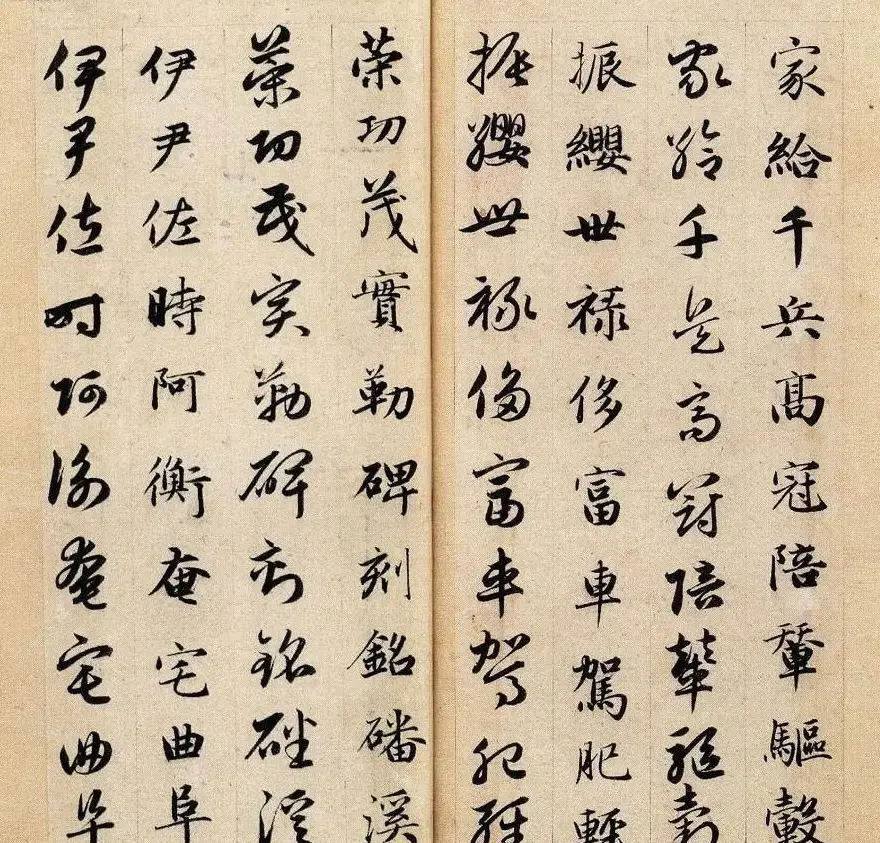 家給千兵高冠陪輦驅轂
家給千兵高冠陪輦驅轂
振纓世祿侈富車駕肥輕
振纓世祿侈富車駕肥輕
策功茂實勒碑刻銘磻溪
策功茂實勒碑刻銘磻溪
伊尹佐時阿衡奄宅曲阜
伊尹佐時阿衡奄宅曲阜